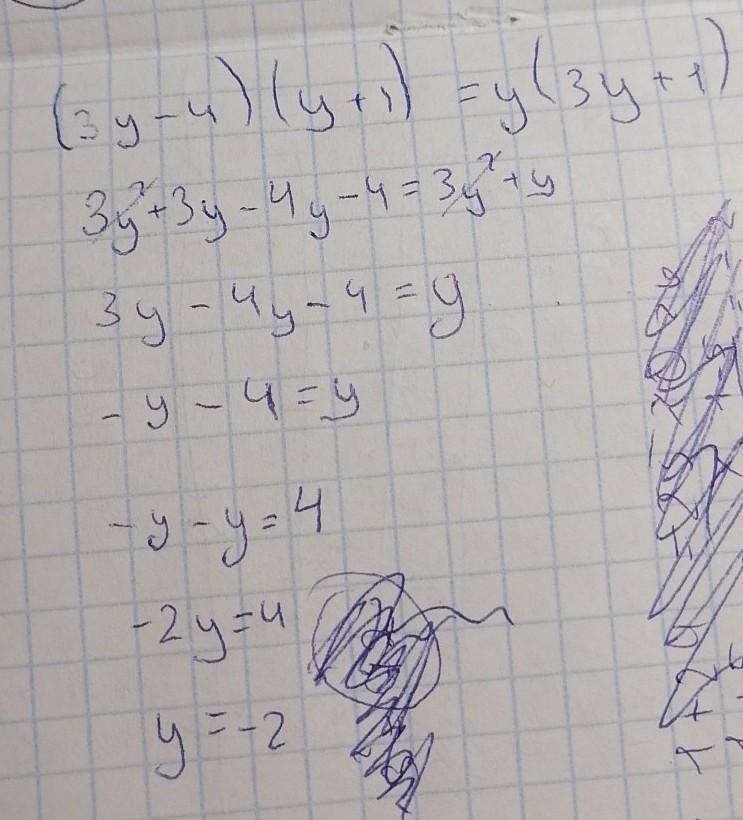 (3y-4)(y+1) = y(3y+1)
3y²+3y-4y-4=3y²+y
3y-4y-4=y
-y-4=y
-y-y=4
-2y=4
y=-2